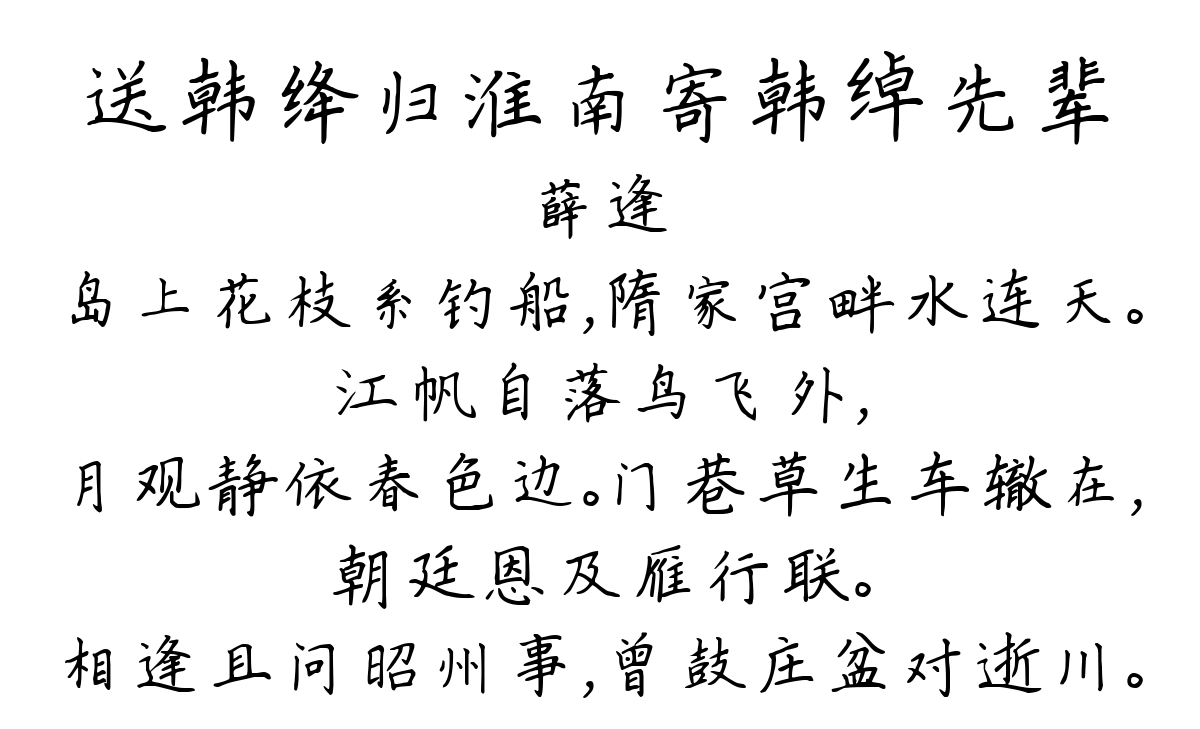 送韩绛归淮南寄韩绰先辈
薛逢
岛上花枝系钓船,隋家宫畔水连天。
江帆自落鸟飞外,
月观静依春色边。门巷草生车辙在,
朝廷恩及雁行联。
相逢且问昭州事,曾鼓庄盆对逝川。